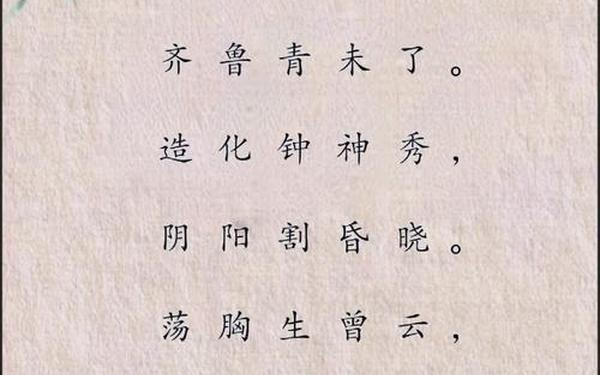 齐鲁青未了。
造化钟神秀，
阴阳割昏晓。
荡胸生曾云，